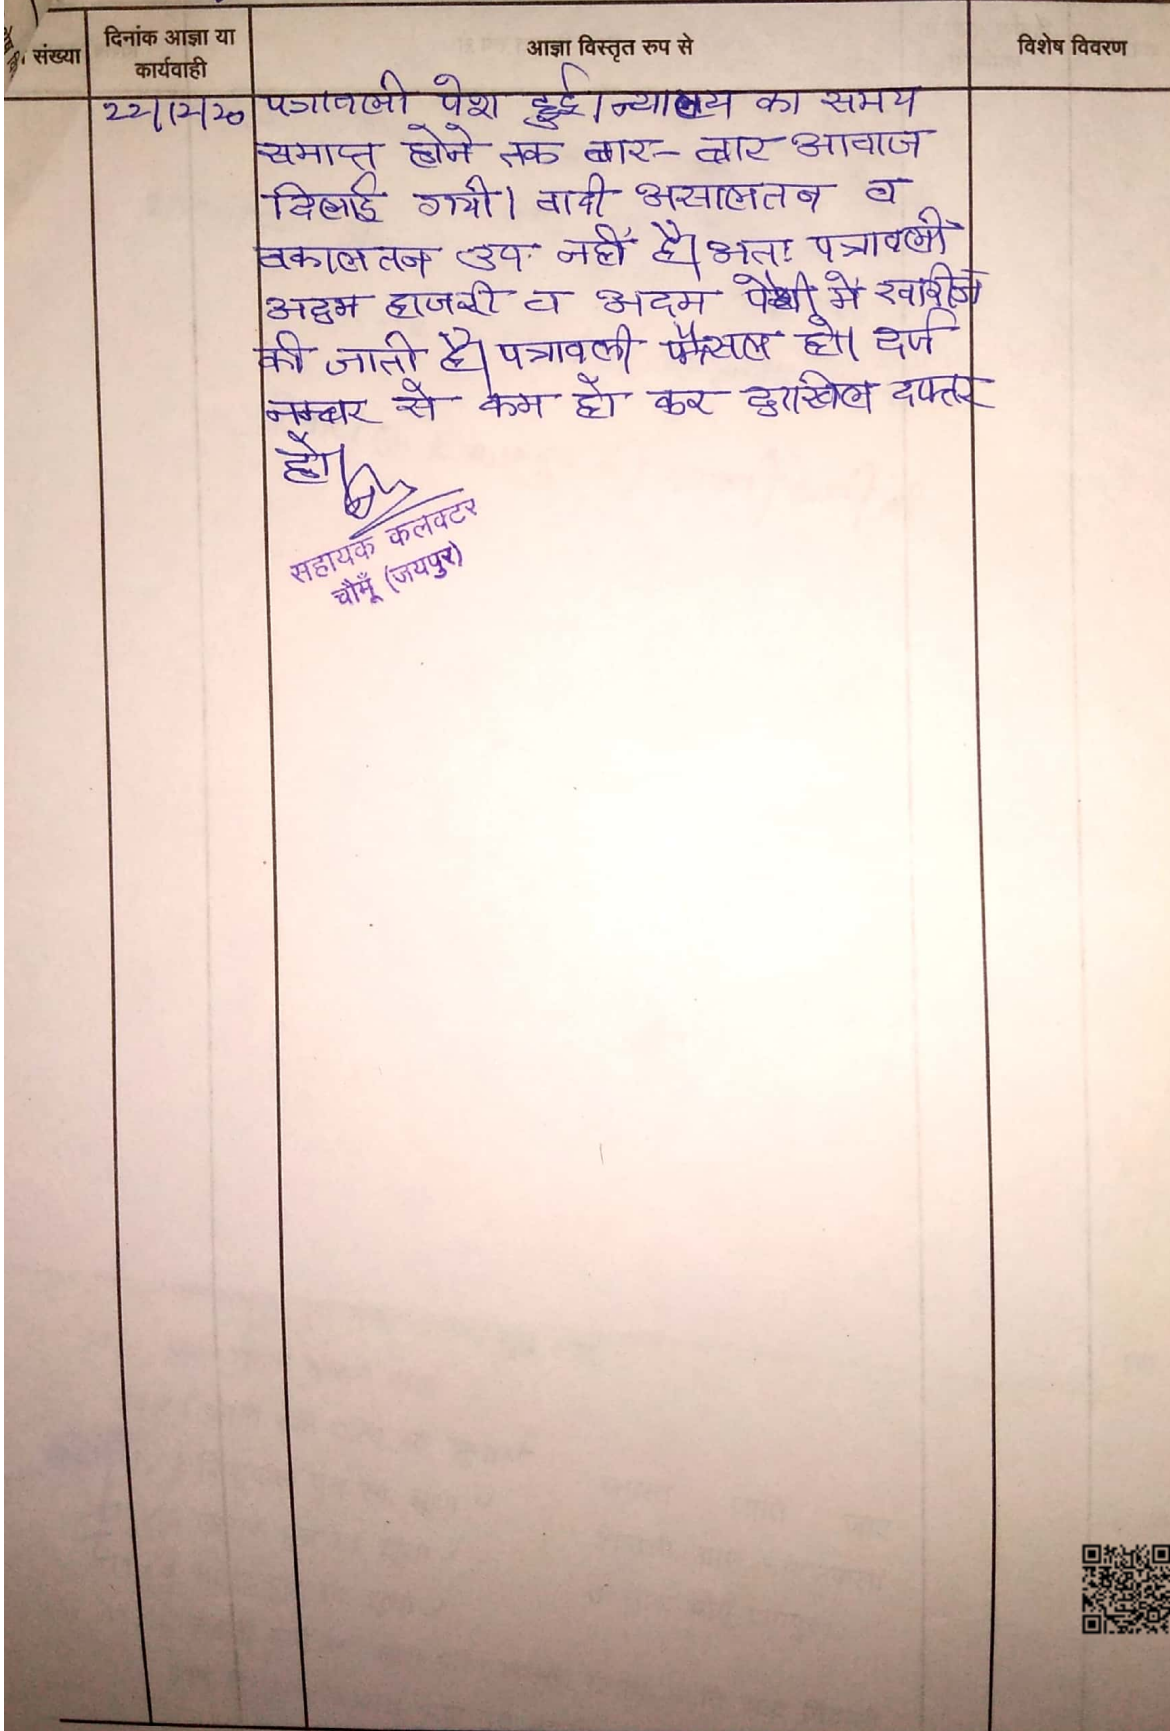 संख्या
दिनांक आज्ञा या
कार्यवाही
आज्ञा विस्तृत रुप से
विशेष विवरण
22/12/20
पत्रावली पेश हुई। न्यालय का समय
समाप्त होने तक बार-बार आवाज
दिलाई गयी। वादी असालतन व
वकालतन उप. नहीं है। अतः पत्रावली
अदम हाजरी व अदम पैरवी में खारीज
की जाती है। पत्रावली फैसल हो। दर्ज
नम्बर से कम हो कर दाखिल दफ्तर
हो।
सहायक कलक्टर
चौमूँ (जयपुर)